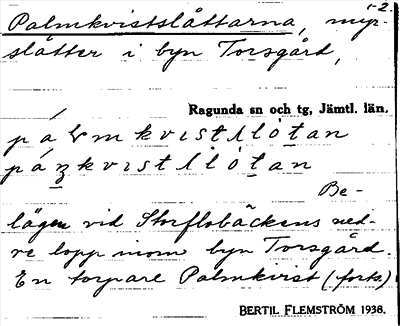 1-2
Palmkvistslåttarna, myr-
slåtter i byn Torsgård,
Ragunda sn och tg, Jämtl. län.
Be-
lägen vid Storflobäckens ned-
re lopp inom byn Torsgård.
En torpare Palmkvist (forts)
BERTIL FLEMSTRÖM 1938.